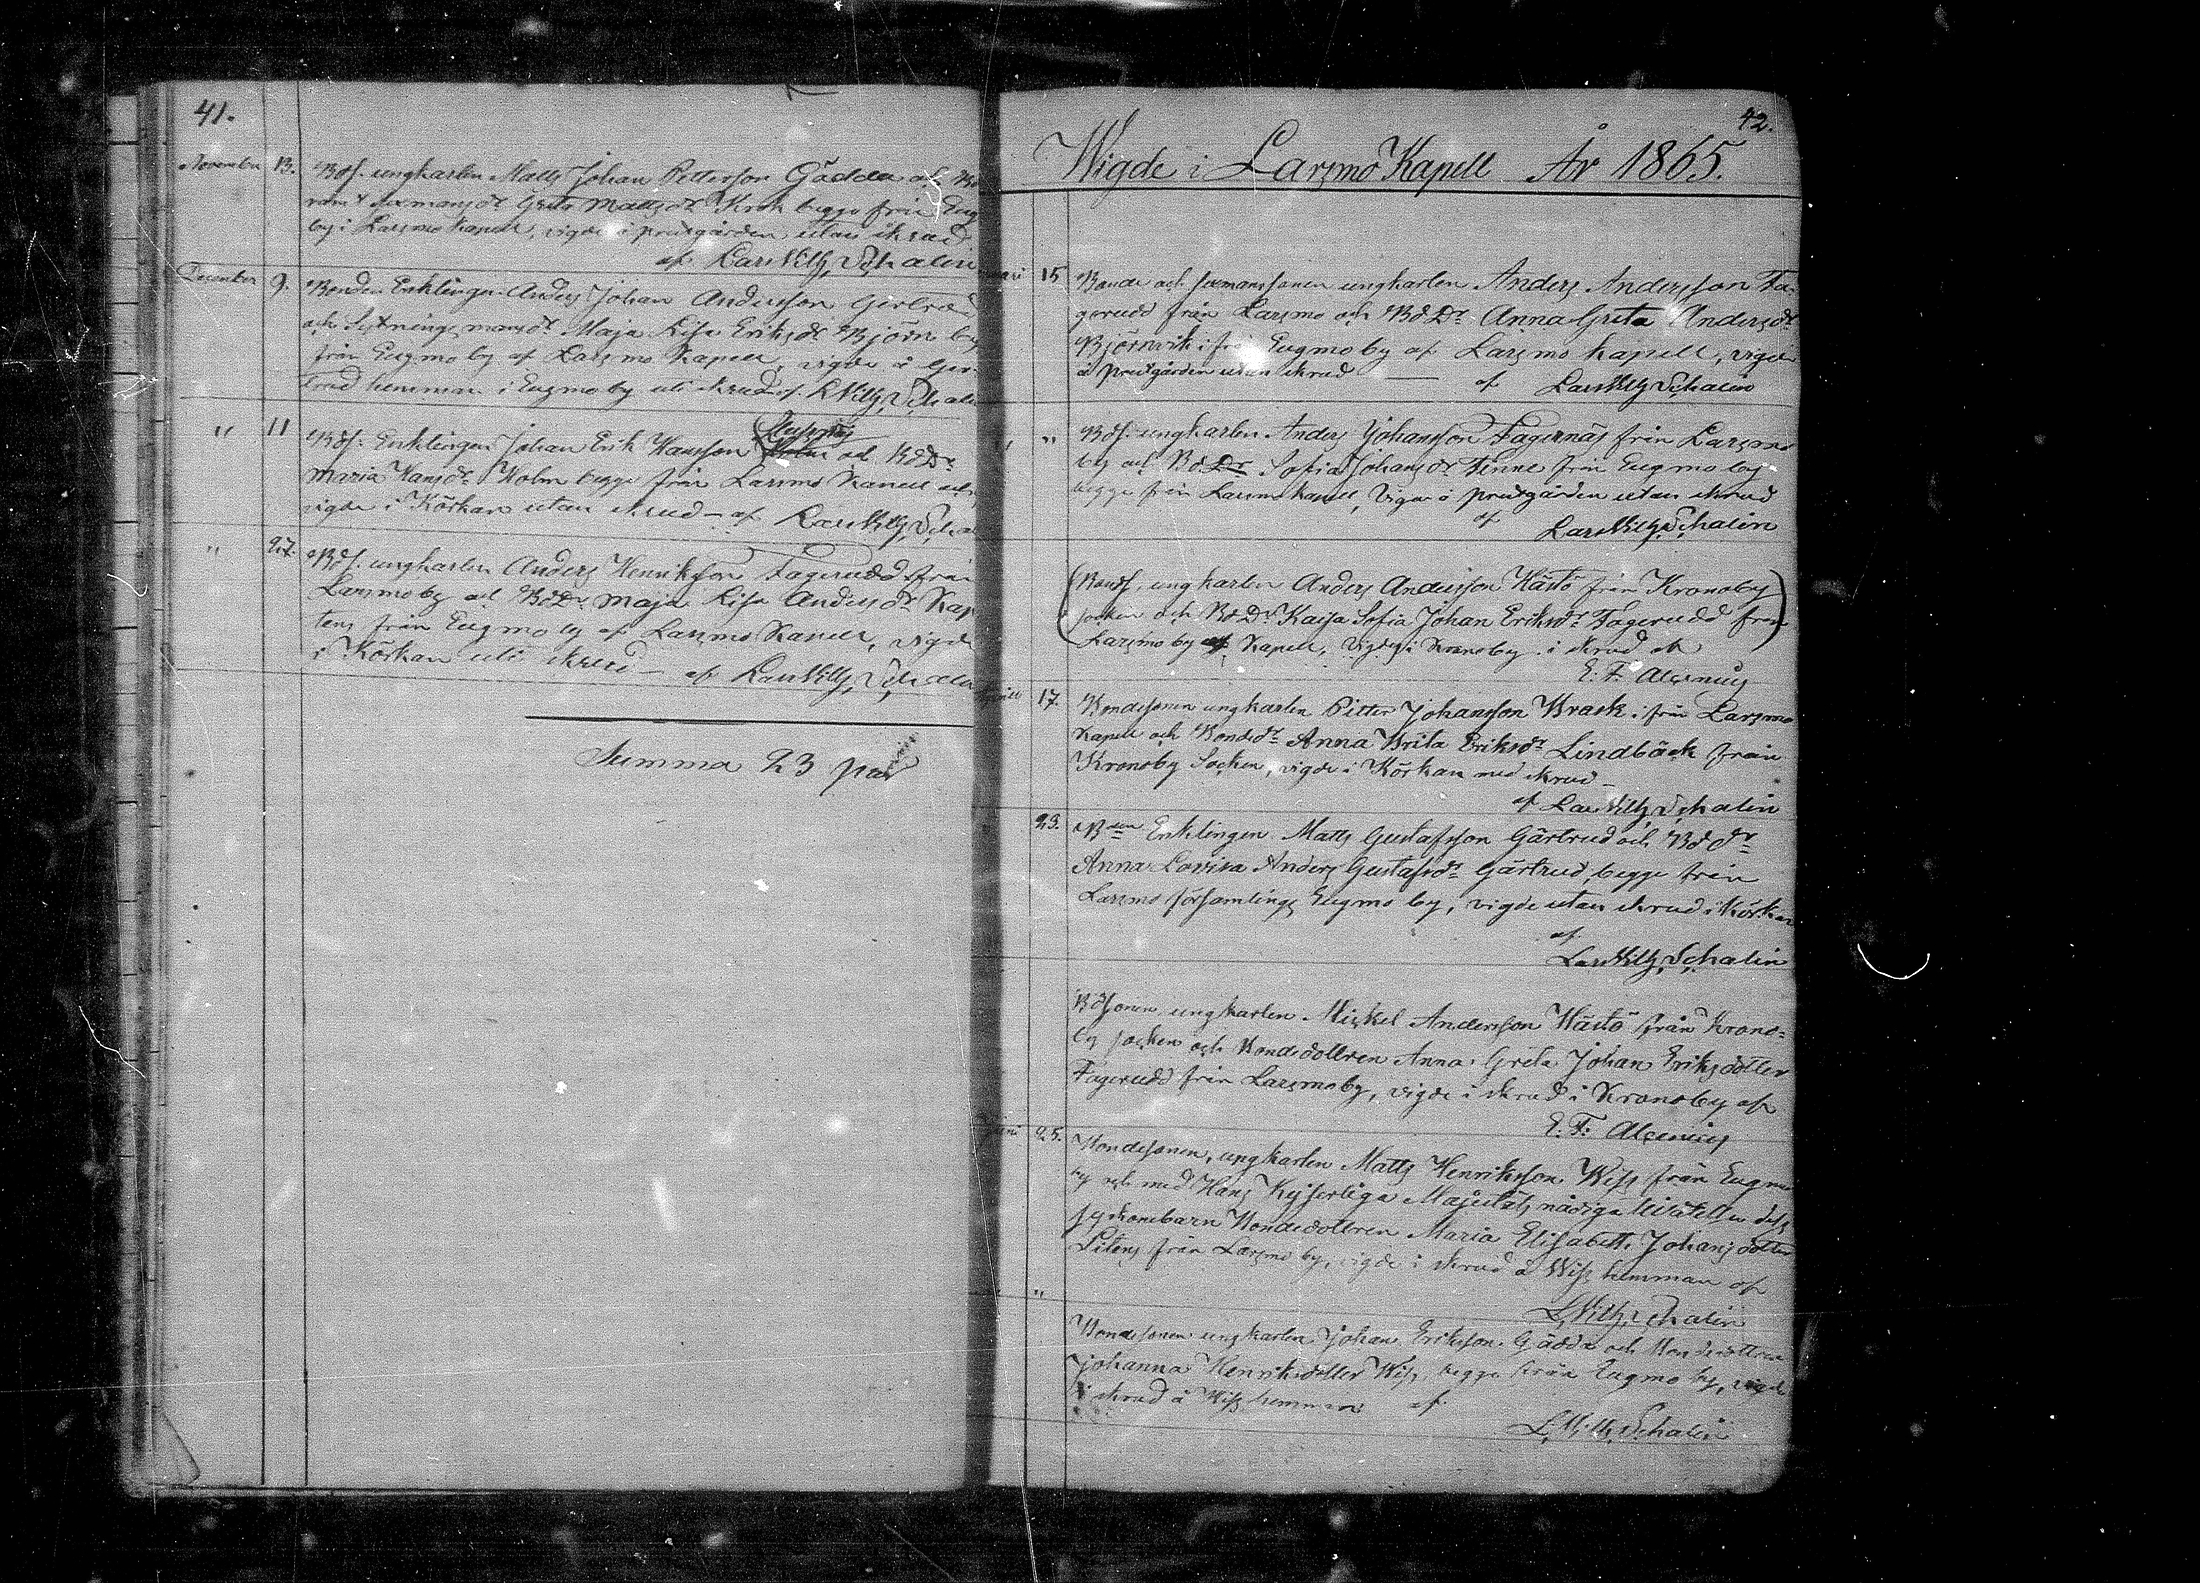 41.
November 13. Bdss. ungkarlen Matts Johan Pettersson Gädda och
Greta Mattsdr Krok begge från Eug
by i Larsmo Kapell, vigde å prestgården utan skrud
af Lars Wilh. Schalin
December 9. Bonden Enklingen Anders Johan Andersson Gertrud
och Maja Lisa Eriksdr Björn
från Eugmo by af Larsmo Kapell, vigde å Ger-
trud hemman i Eugmo by uti skrud af L Wilh. Schalin
" 11 Bds. Enklingen Johan Erik Hansson och BdDr
Maria Hansdr Holm begge från Larsmo Kapell och
vigde i Körkan utan skrud – af Lars Wilh. Scha
" 27. Bds. ungkarlen Anders Henriksson Fagerudd från
Larsmo by och BdDr Maja Lisa Andersdr Kap
tens från Eugmo by af Larsmo Kapell, vigde
i Körkan uti skrud – af Lars Wilh. Schalin
Summa 23 par
42.
Wigde i Larsmo Kapell År 1865.
15 Bonde och sexmanssonen ungkarlen Anders Andersson Fa-
gerudd från Larsmo och BdDr Anna Greta Andersdr
Björnvik ifrån Eugmo by af Larsmo Kapell, vigde
å prestgården utan skrud — af Lars Wilh. Schalin
" Bds. ungkarlen Anders Johansson Fagernäs från Larsmo
by och BdDr Sofia Johansdr Finne från Eugmo by
begge från Larsmo kapell, Vigde å prestgården utan skrud
af Lars Wilh. Schalin
(Bonds. ungkarlen Anders Andersson Hästö från Kronoby
socken och BdDr Kaisa Sofia Johan Eriksdr Fagerudd från
Larsmo by af Kapell, Vigde i Kronoby i skrud af)
E. F. Alcenius
April 17. Bondesonen ungkarlen Petter Johansson Brask ifrån Larsmo
Kapell och Bondedr Anna Brita Eriksdr Lindbäck från
Kronoby Socken, vigde i Körkan med skrud –
af Lars Wilh. Schalin
23. Bden Enklingen Matts Gustafsson Gärtrud och Bddr
Anna Lovisa Anders Gustafsdr Gärtrud, begge från
Larsmo församlings Eugmo by, vigde utan skrud i Körkan
af
Lars Wilh. Schalin
Bdsonen ungkarlen Mickel Andersson Hästö från Krono-
by socken och Bondedottren Anna Greta Johan Eriksdotter
Fagerudd från Larsmo by, vigde i skrud i Kronoby af
E. F. Alcenius
Juni 25. Bondesonen, ungkarlen Matts Henriksson Wiss från Eugmo
by och med Hans Kejserliga Majestäts nådiga tillåtelse dess
syskonebarn Bondedottren Maria Elisabeth Johansdotter
från Larsmo by, vigde i skrud å Wiss hemman af
L. Wilh. Schalin
" Bondesonen ungkarlen Johan Eriksson Gädda och Bondedottren
Johanna Henriksdotter Wiss, begge från Eugmo by, vigde
i skrud å Wiss hemman af
L. Wilh. Schalin